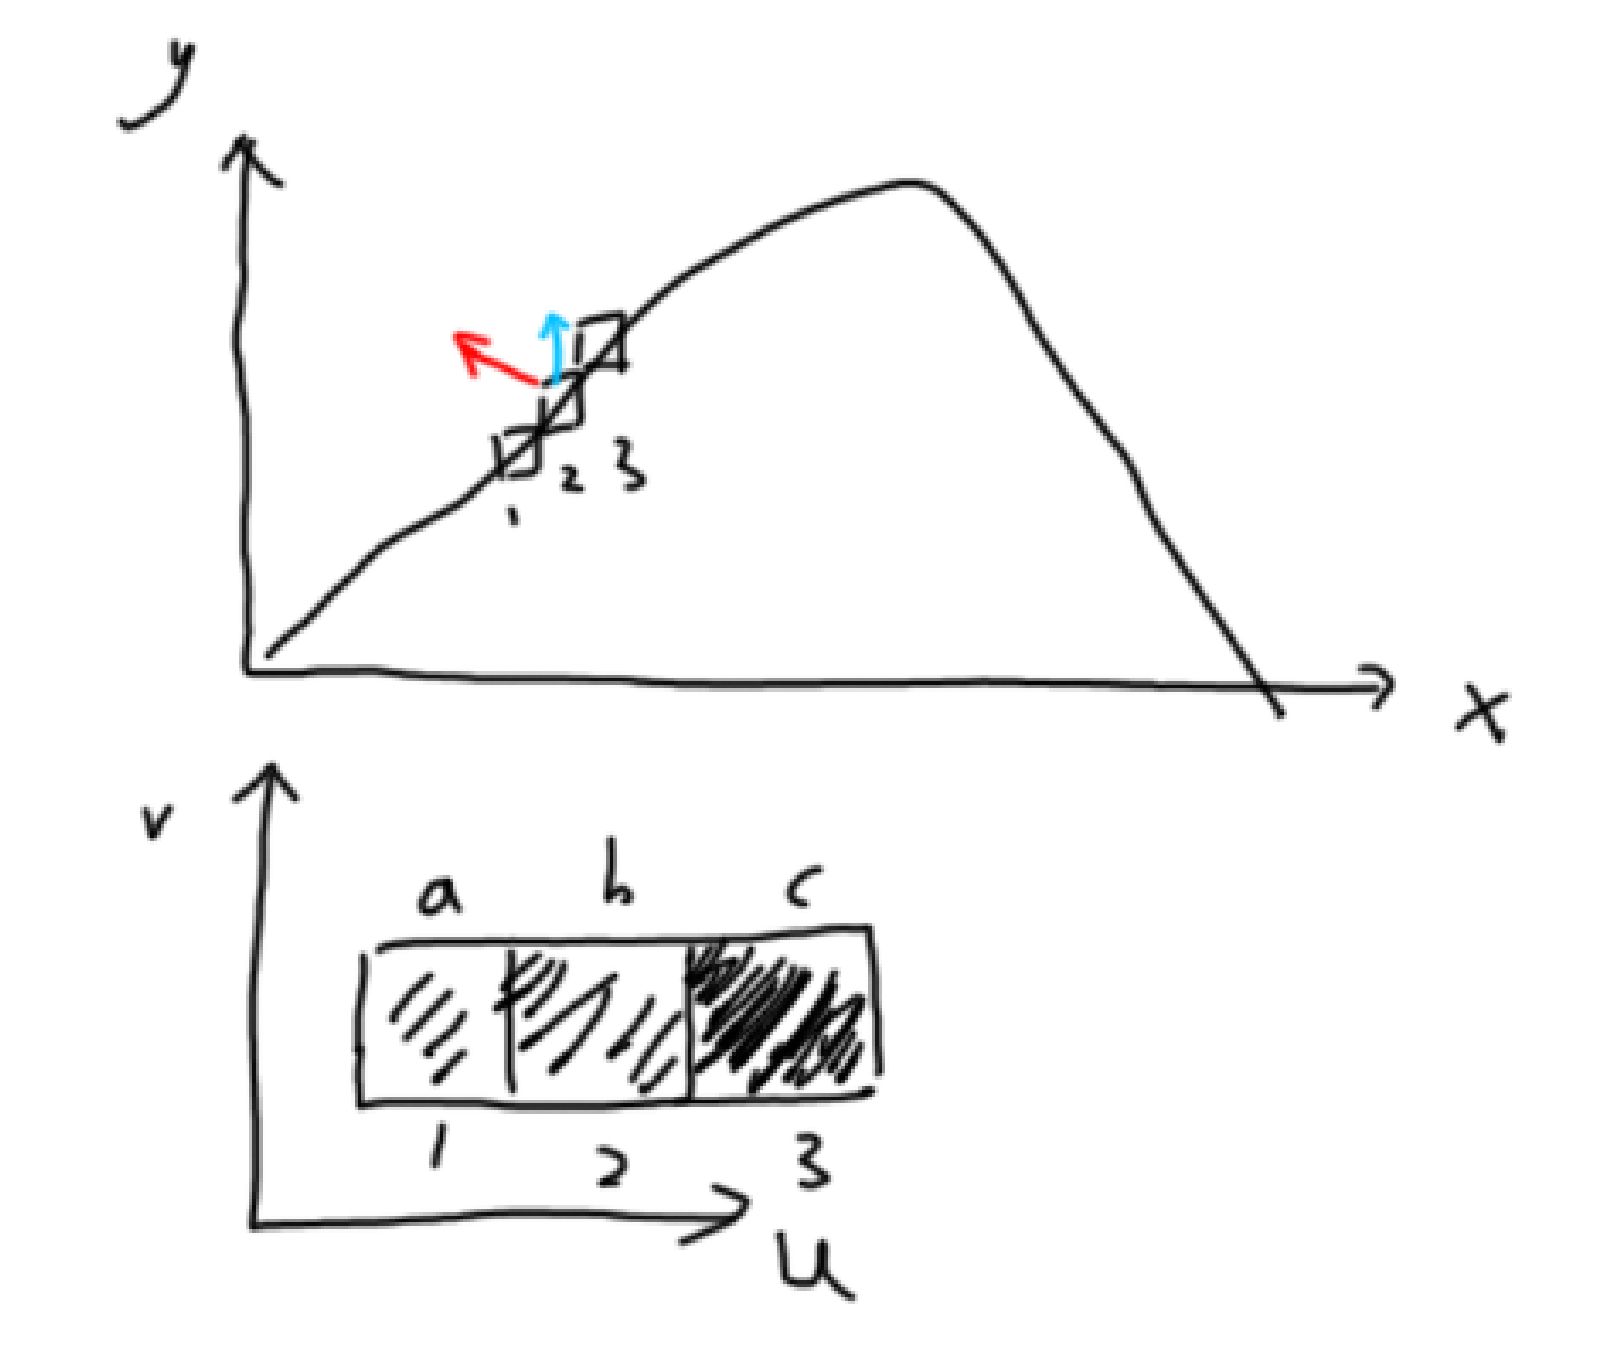 y
2 3
1
x
v
a b c
1 2 3
u